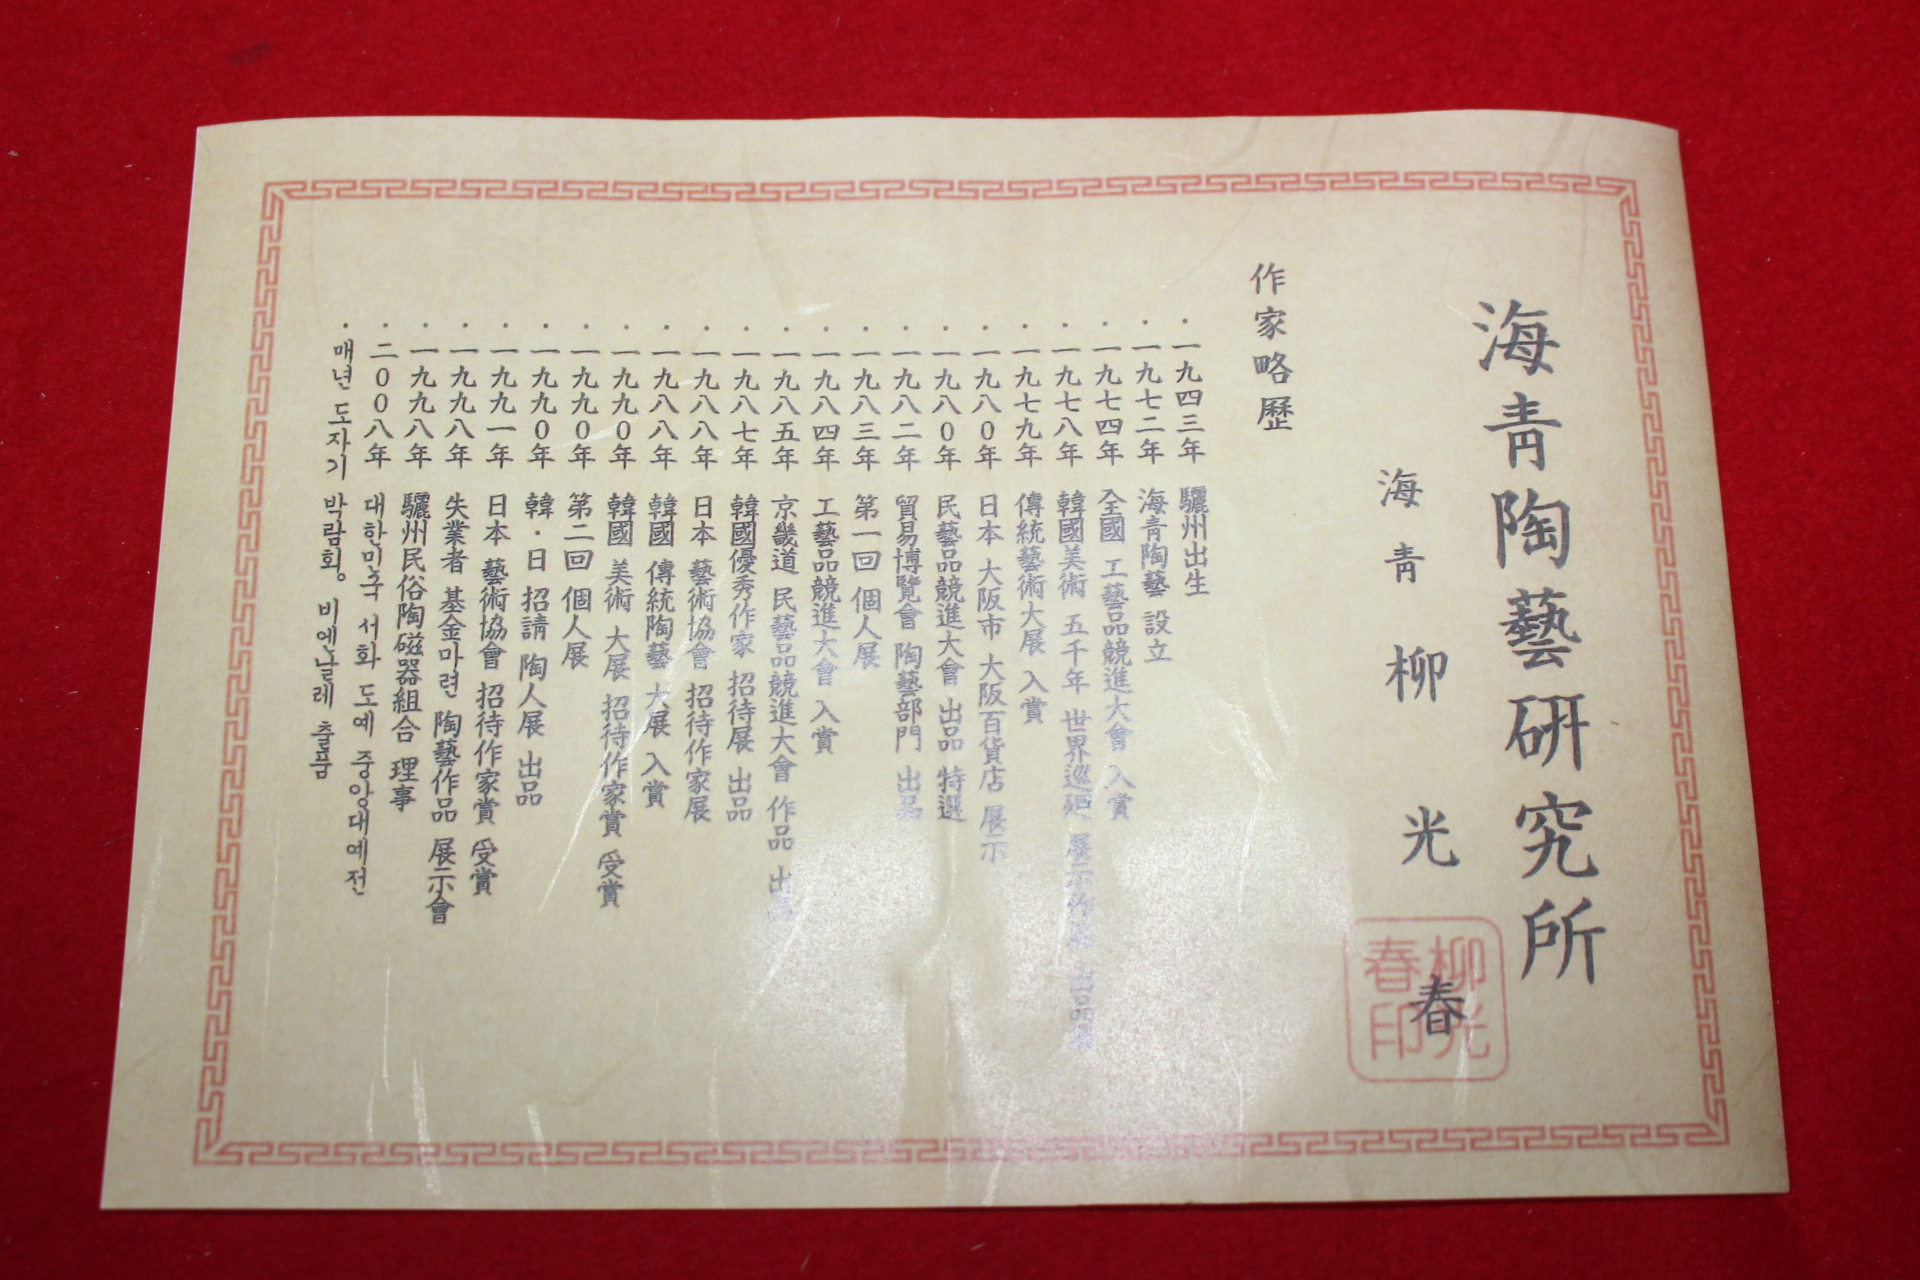 海靑陶藝硏究所
海靑 柳光春
柳光春印
作家略歷
· 一九四三年 驪州出生
· 一九七二年 海靑陶藝 設立
· 一九七四年 全國 工藝品競進大會 入賞
· 一九七八年 韓國美術 五千年 世界巡廻 展示作品 出品
· 一九七九年 傳統藝術大展 入賞
· 一九八0年 日本 大阪市 大阪百貨店 展示
· 一九八0年 民藝品競進大會 出品 特選
· 一九八二年 貿易博覽會 陶藝部門 出品
· 一九八三年 第一回 個人展
· 一九八四年 工藝品競進大會 入賞
· 一九八五年 京畿道 民藝品競進大會 作品 出品
· 一九八七年 韓國優秀作家 招待展 出品
· 一九八八年 日本 藝術協會 招待作家展
· 一九八八年 韓國 傳統陶藝 大展 入賞
· 一九九0年 韓國 美術 大展 招待作家賞 受賞
· 一九九0年 第二回 個人展
· 一九九0年 韓·日 招請 陶人展 出品
· 一九九一年 日本 藝術協會 招待作家賞 受賞
· 一九九八年 失業者 基金마련 陶藝作品 展示會
· 一九九八年 驪州民俗陶磁器組合 理事
· 二00八年 대한민국 서화 도예 중앙대예전
· 매년 도자기 박람회。 비엔날레 출품